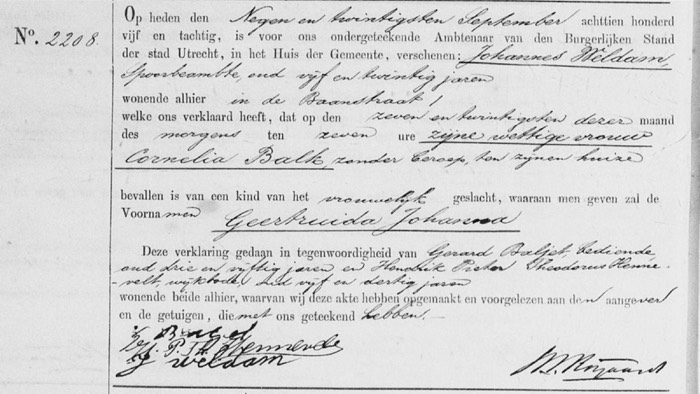 Nº. 2208.
Op heden den Negen en twintigsten September achttien honderd
vijf en tachtig, is voor ons ondergeteekende Ambtenaar van den Burgerlijken Stand
der stad Utrecht, in het Huis der Gemeente, verschenen: Johannes Weldam,
Spoorbeambte, oud vijf en twintig jaren
wonende alhier in de Baanstraat
welke ons verklaard heeft, dat op den zeven en twintigsten dezer maand
des morgens ten zeven ure zijne wettige vrouw
Cornelia Balk zonder beroep, ten zijnen huize
bevallen is van een kind van het vrouwelijk geslacht, waaraan men geven zal de
Voornamen Geertruida Johanna
Deze verklaring gedaan in tegenwoordigheid van Gerard Baljet, bediende
oud drie en vijftig jaren en Hendrik Pieter Theodorus Henne-
-velt, wijkbode, oud vijf en dertig jaren
wonende beide alhier, waarvan wij deze akte hebben opgemaakt en voorgelezen aan den aangever
en de getuigen, die met ons geteekend hebben.
J Weldam